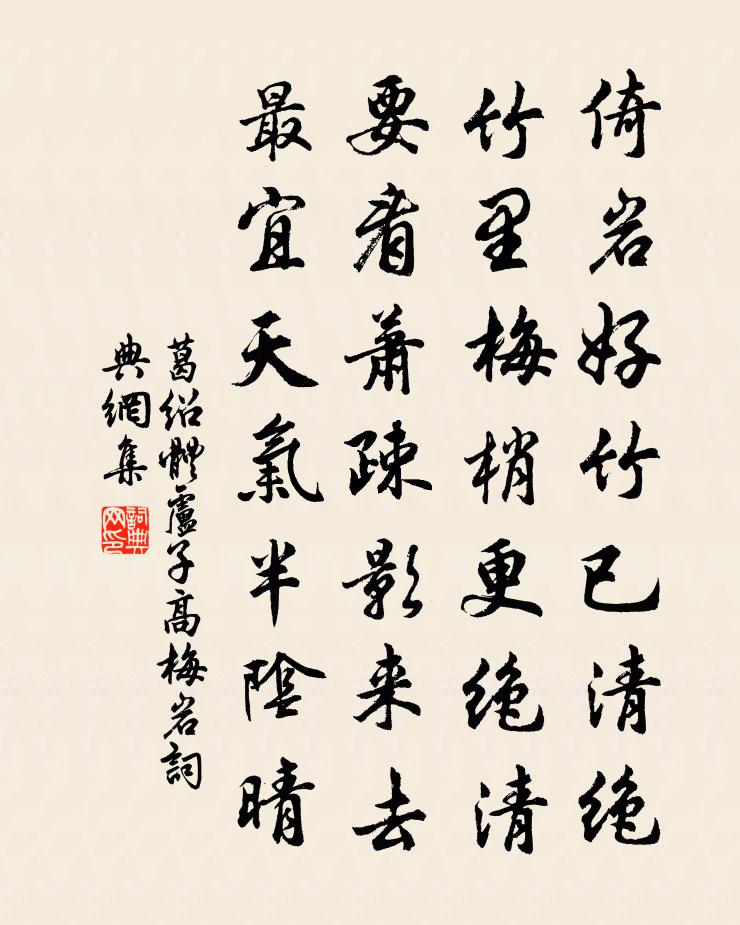 倚岩好竹已清绝
竹里梅梢更绝清
要看萧疎影来去
最宜天氣半陰晴
葛绍體盧子高梅岩詞
典網集
詞典
网印